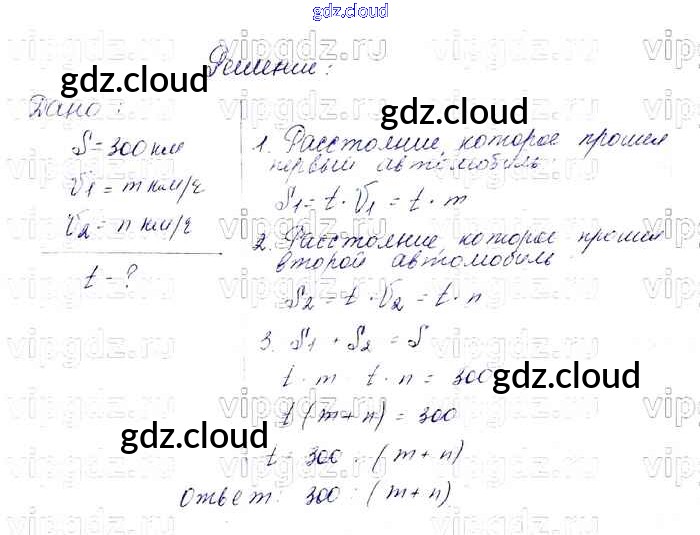 gdz.cloud
Решение:
gdz.cloud
Дано:
gdz.cloud
S = 300 км
V1 = m км/ч
V2 = n км/ч
t - ?
1. Расстояние, которое прошел
первый автомобиль:
S1 = t · V1 = t · m
2. Расстояние, которое прошел
второй автомобиль
S2 = t · V2 = t · n
3. S1 + S2 = S
t · m t · n = 300
gdz.cloud
t (m + n) = 300
gdz.cloud
t 300 : (m + n)
Ответ: 300 : (m + n)
vipgdz.ru